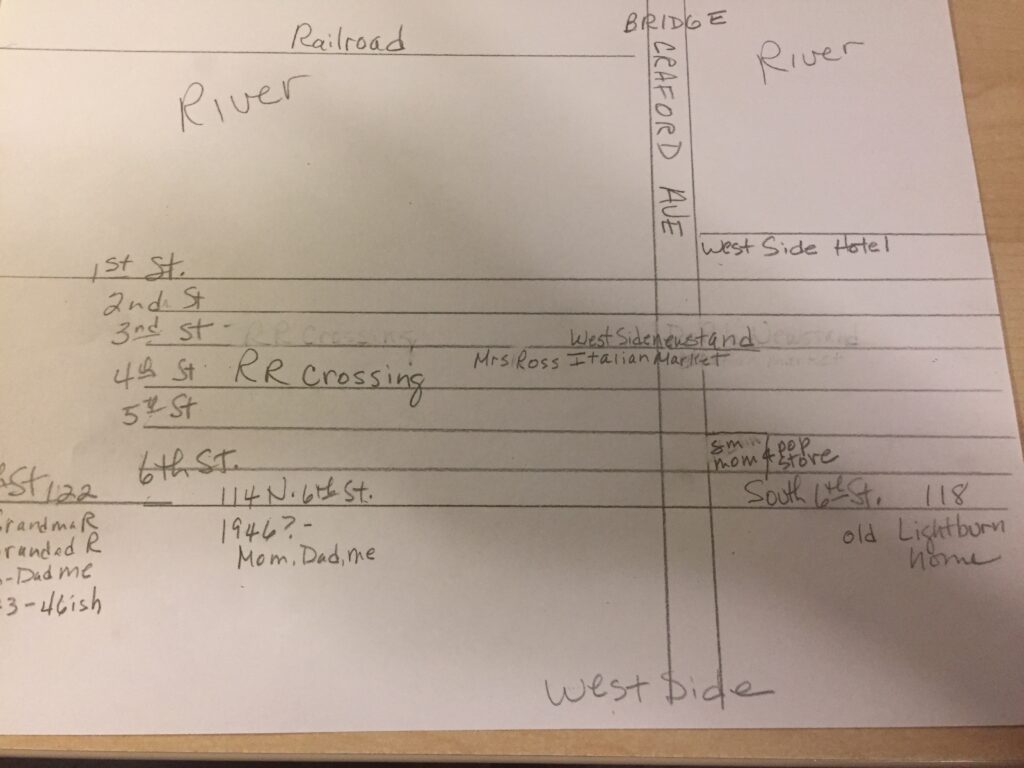 BRIDGE
Railroad
River
River
CRAFORD AVE
West Side Hotel
1st St.
2nd St
3nd St -
RR Crossing
West Side newstand
Mrs Ross Italian Market
4th St
RR Crossing
5th St
6th St.
mom & pop
store
St 122
114 N. 6th St.
South 6th St. 118
GrandmaR
Grandad R
1946? -
old Lightburn
Home
-Dad me
Mom, Dad, me
3-46ish
West Side